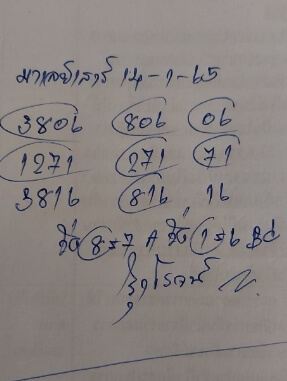 มาเลย์เสาร์ 14-1-65
3806 806 06
1271 271 71
3816 816 16
วิ่ง 8=7 A วิ่ง 1=6 Bd